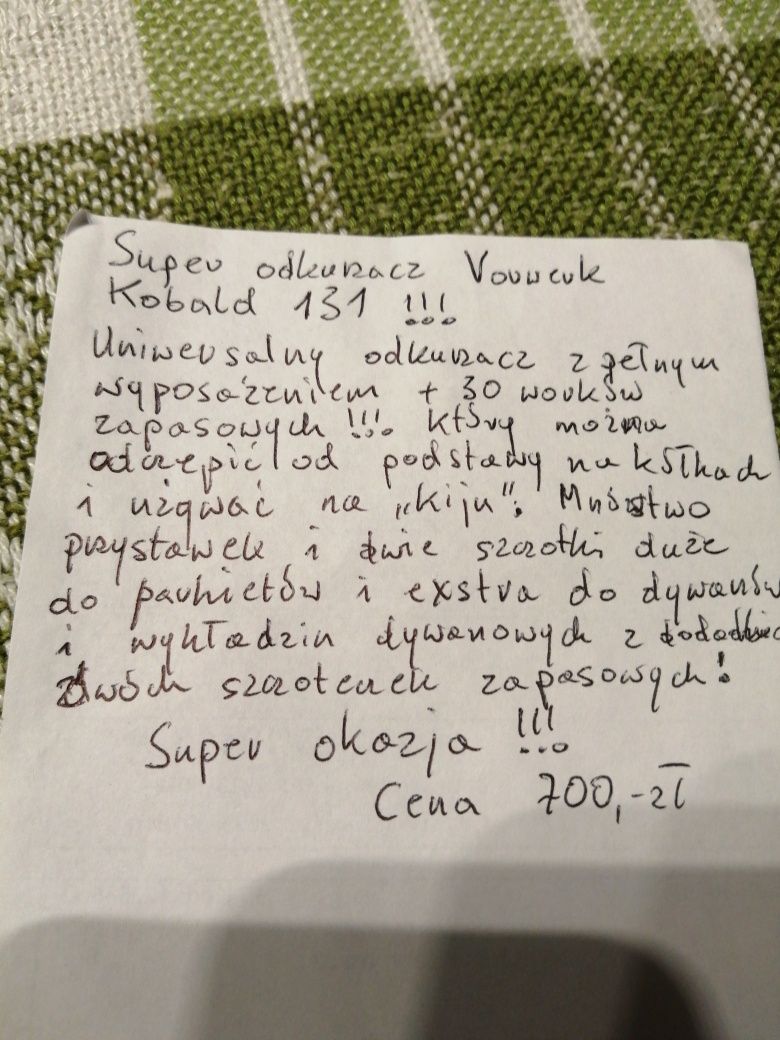 Super odkurzacz Vorwerk
Kobald 131 !!!
Uniwersalny odkurzacz z pełnym
wyposażeniem + 30 worków
zapasowych !!! który można
odczepić od podstawy na kółkach
i używać na „kiju". Mnóstwo
przystawek i dwie szczotki duże
do parkietów i exstra do dywanów
i wykładzin dywanowych z
dwóch szczoteczek zapasowych!
Super okazja !!!
Cena 700,-zł